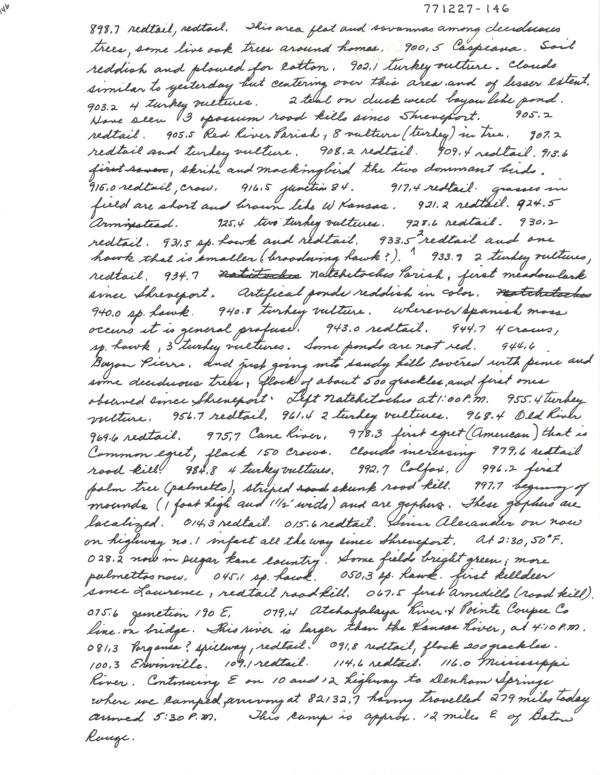 146
771227-146
898.7 redtail, redtail. This area flat and savannas among deciduous
trees, some live oak trees around homes. 900.5 Caspiana. Soil
reddish and plowed for cotton. 902.1 turkey vulture. Clouds
similar to yesterday but centering over this area and of lesser extent.
903.2 4 turkey vultures. 2 teal on duck weed bayou like pond.
Have seen 3 opossum road kills since Shreveport. 905.2
redtail. 905.5 Red River Parish, 8 vulture (turkey) in tree. 907.2
redtail and turkey vulture. 908.2 redtail. 909.4 redtail. 913.6
shrike and mockingbird the two dominant birds.
915.0 redtail, crow. 916.5 junction 84. 917.4 redtail. grasses in
field are short and brown like W Kansas. 921.2 redtail. 924.5
Armistead. 925.4 two turkey vultures. 928.6 redtail. 930.2
redtail. 931.5 sp. hawk and redtail. 933.5 2 redtail and one
hawk that is smaller (broadwing hawk?). 933.9 2 turkey vultures,
redtail. 934.7 Natitoches Natchitoches Parish, first meadowlark
since Shreveport. Artifical ponds reddish in color. Natchitoches
940.0 sp. hawk. 940.8 turkey vulture. Wherever Spanish moss
occurs it is general profuse. 943.0 redtail. 944.7 4 crows,
sp. hawk, 3 turkey vultures. Some ponds are not red. 944.6
Bayou Pierre. and just going into sandy hills covered with pine and
some deciduous trees, flock of about 500 grackles, and first ones
observed since Shreveport. Left Natchitoches at 1:00 P.M. 955.4 turkey
vulture. 956.7 redtail, 961.4 2 turkey vultures. 968.4 Old River
969.6 redtail. 975.7 Cane River. 978.3 first egret (American) that is
Common egret, flock 150 crows. Clouds increasing 979.6 redtail
road kill. 984.8 4 turkey vultures. 992.7 Colfax, 996.2 first
palm tree (palmetto), striped road skunk road kill. 997.7 begining of
mounds (1 foot high and 1½' wide) and are gophers. These gophers are
localized. 014.3 redtail. 015.6 redtail. Since Alexander on now
on highway no. 1 infact all the way since Shreveport. At 2:30, 50°F.
028.2 now in sugar kane country. Some fields bright green; more
palmettos now. 045.1 sp. hawk. 050.3 sp. hawk. first killdeer
since Lawrence, redtail road kill. 067.5 first Armedillo (road kill).
075.6 junction 190 E. 079.4 Atchafalaya River & Pointe Coupee Co
line on bridge. This river is larger than the Kansas River, at 4:10 P.M.
081.3 ? spillway, redtail. 091.8 redtail, flock 200 grackles.
100.3 Erwinville. 109.1 redtail. 114.6 redtail. 116.0 Mississippi
River. Continuing E on 10 and 12 highway to Denham Springs
where we camped, arriving at 82132.7 having travelled 279 miles today
arrived 5:30 P.M. This camp is approx. 12 miles E of Baton
Rouge.